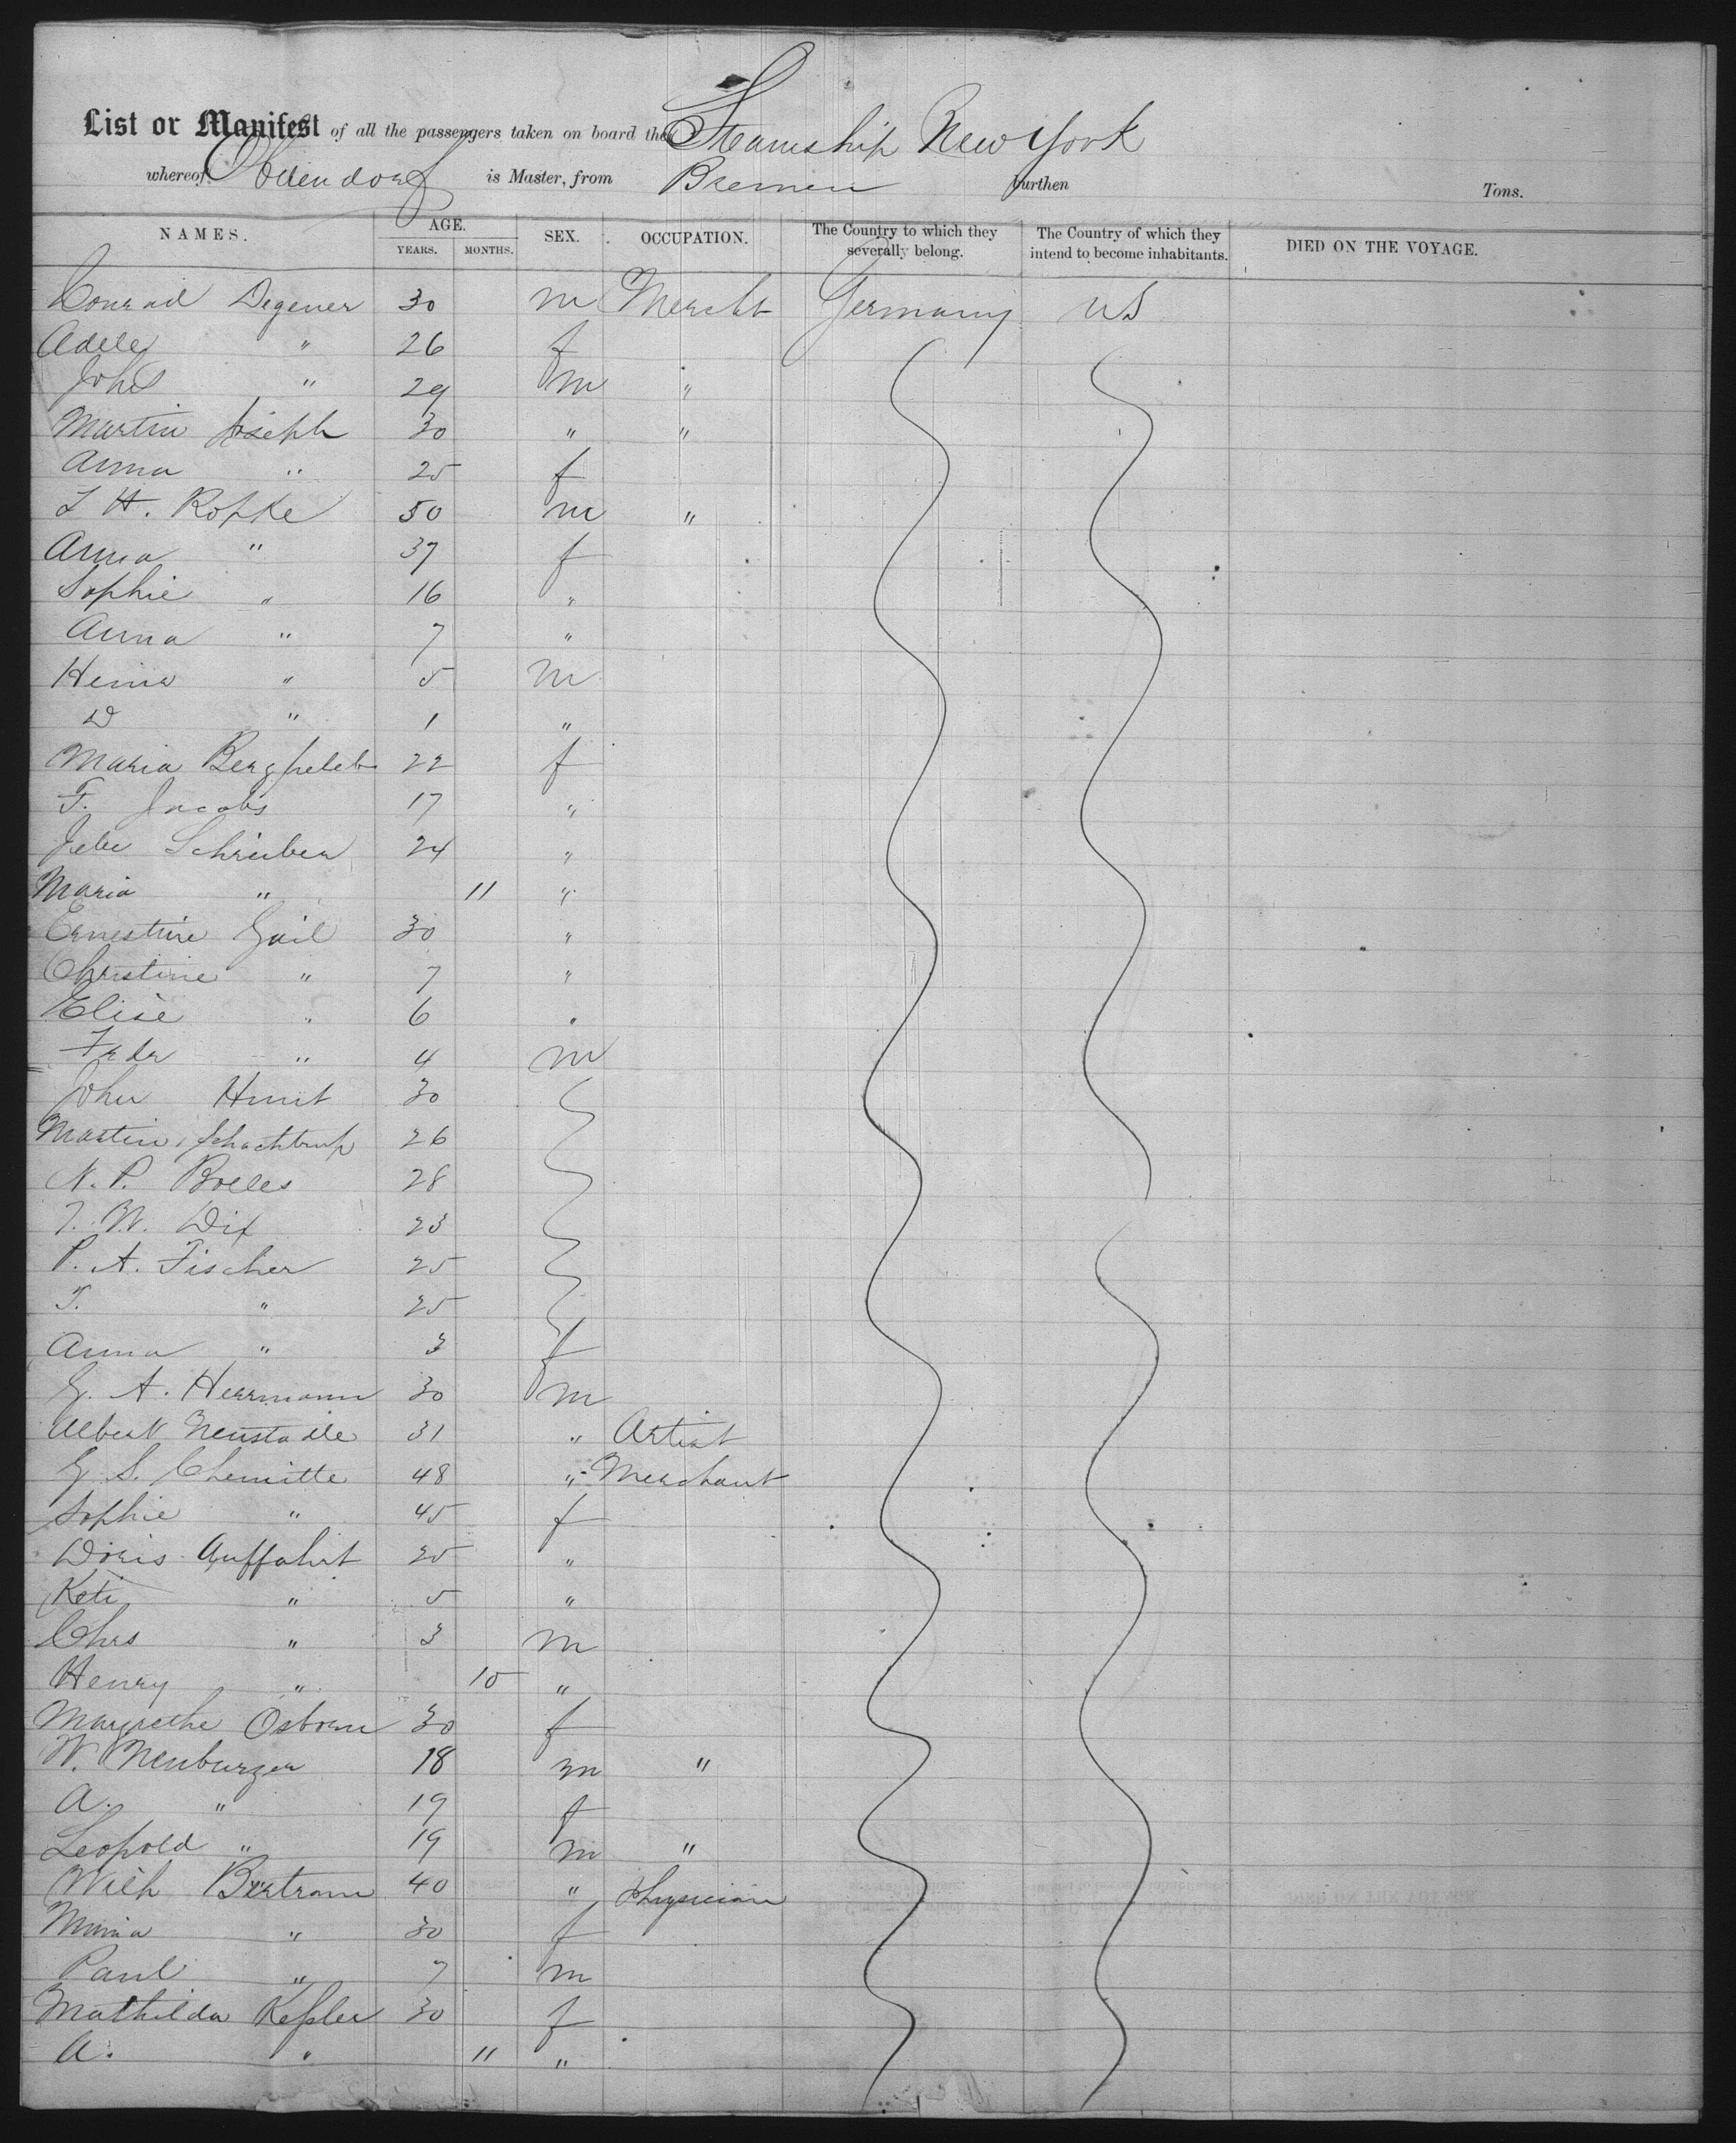 List or Manifest of all the passengers taken on board the Steamship New York
whereof is Master, from Bremen burthen Tons.
NAMES. AGE. YEARS. MONTHS. SEX. OCCUPATION. The Country to which they severally belong. The Country of which they intend to become inhabitants. DIED ON THE VOYAGE.
Conrad Degener 30 m Mercht Germany US
Adele " 26 f
Johs " 29 m "
Martin Joseph 30 " "
Anna " 25 f
L H. Ropke 50 m "
Anna " 37 f
Sophie " 16 "
Anna " 7 "
" 5 m
D " 1 "
Maria 22 f
F. Jacobs 17 "
Schreiber 24 "
Maria " 11 "
Ernestine Gail 30 "
Christine " 7 "
Elise " 6 "
" 4 m
John 30
Martin Schachtrup 26
N. P. Bolles 28
Dix 23
P. A. Fischer 25
T. " 25
Anna " 3 f
G. A. Herrmann 30 m
Albert 31 " Artist
G. S. 48 " Merchant
Sophie " 45 f
Doris Auffahrt 25 "
Keti " 5 "
Chrs " 3 m
Henry " 10 "
Margrethe Osborn 30 f
W. Neuburger 18 m "
A. " 19 f
Leopold " 19 m "
Wilh Bertram 40 " Physician
" 30 f
Paul " 7 m
Mathilda Keßler 30 f
A. " 11 "